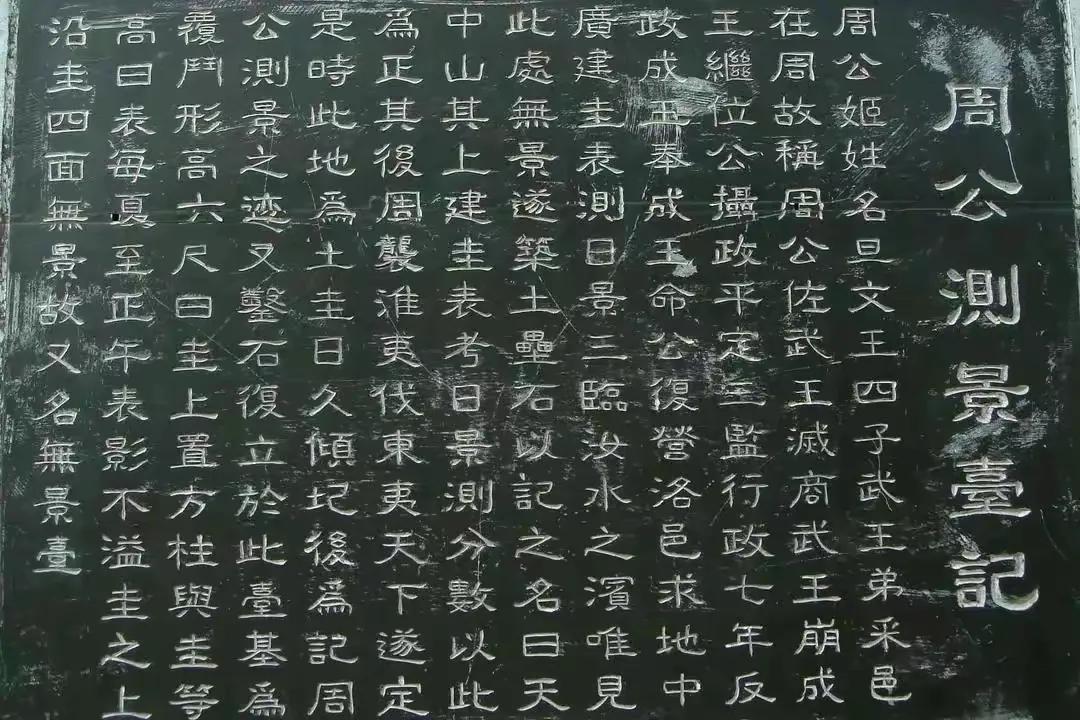 周公測景臺記
周公姬姓名旦文王四子武王弟采邑
在周故稱周公佐武王滅商武王崩成
王繼位公攝政平定三監行政七年反
政成王奉成王命公復營洛邑求地中
廣建圭表測日景三臨汝水之濱唯見
此處無景遂築土壘石以記之名曰天
中山其上建圭表考日景測分數以此
為正其後周襲淮夷伐東夷天下遂定
是時此地為土圭日久傾圮後為記周
公測景之迹又鑿石復立於此臺基為
覆鬥形高六尺曰圭上置方柱與圭等
高曰表每夏至正午表影不溢圭之上
沿圭四面無景故又名無景臺